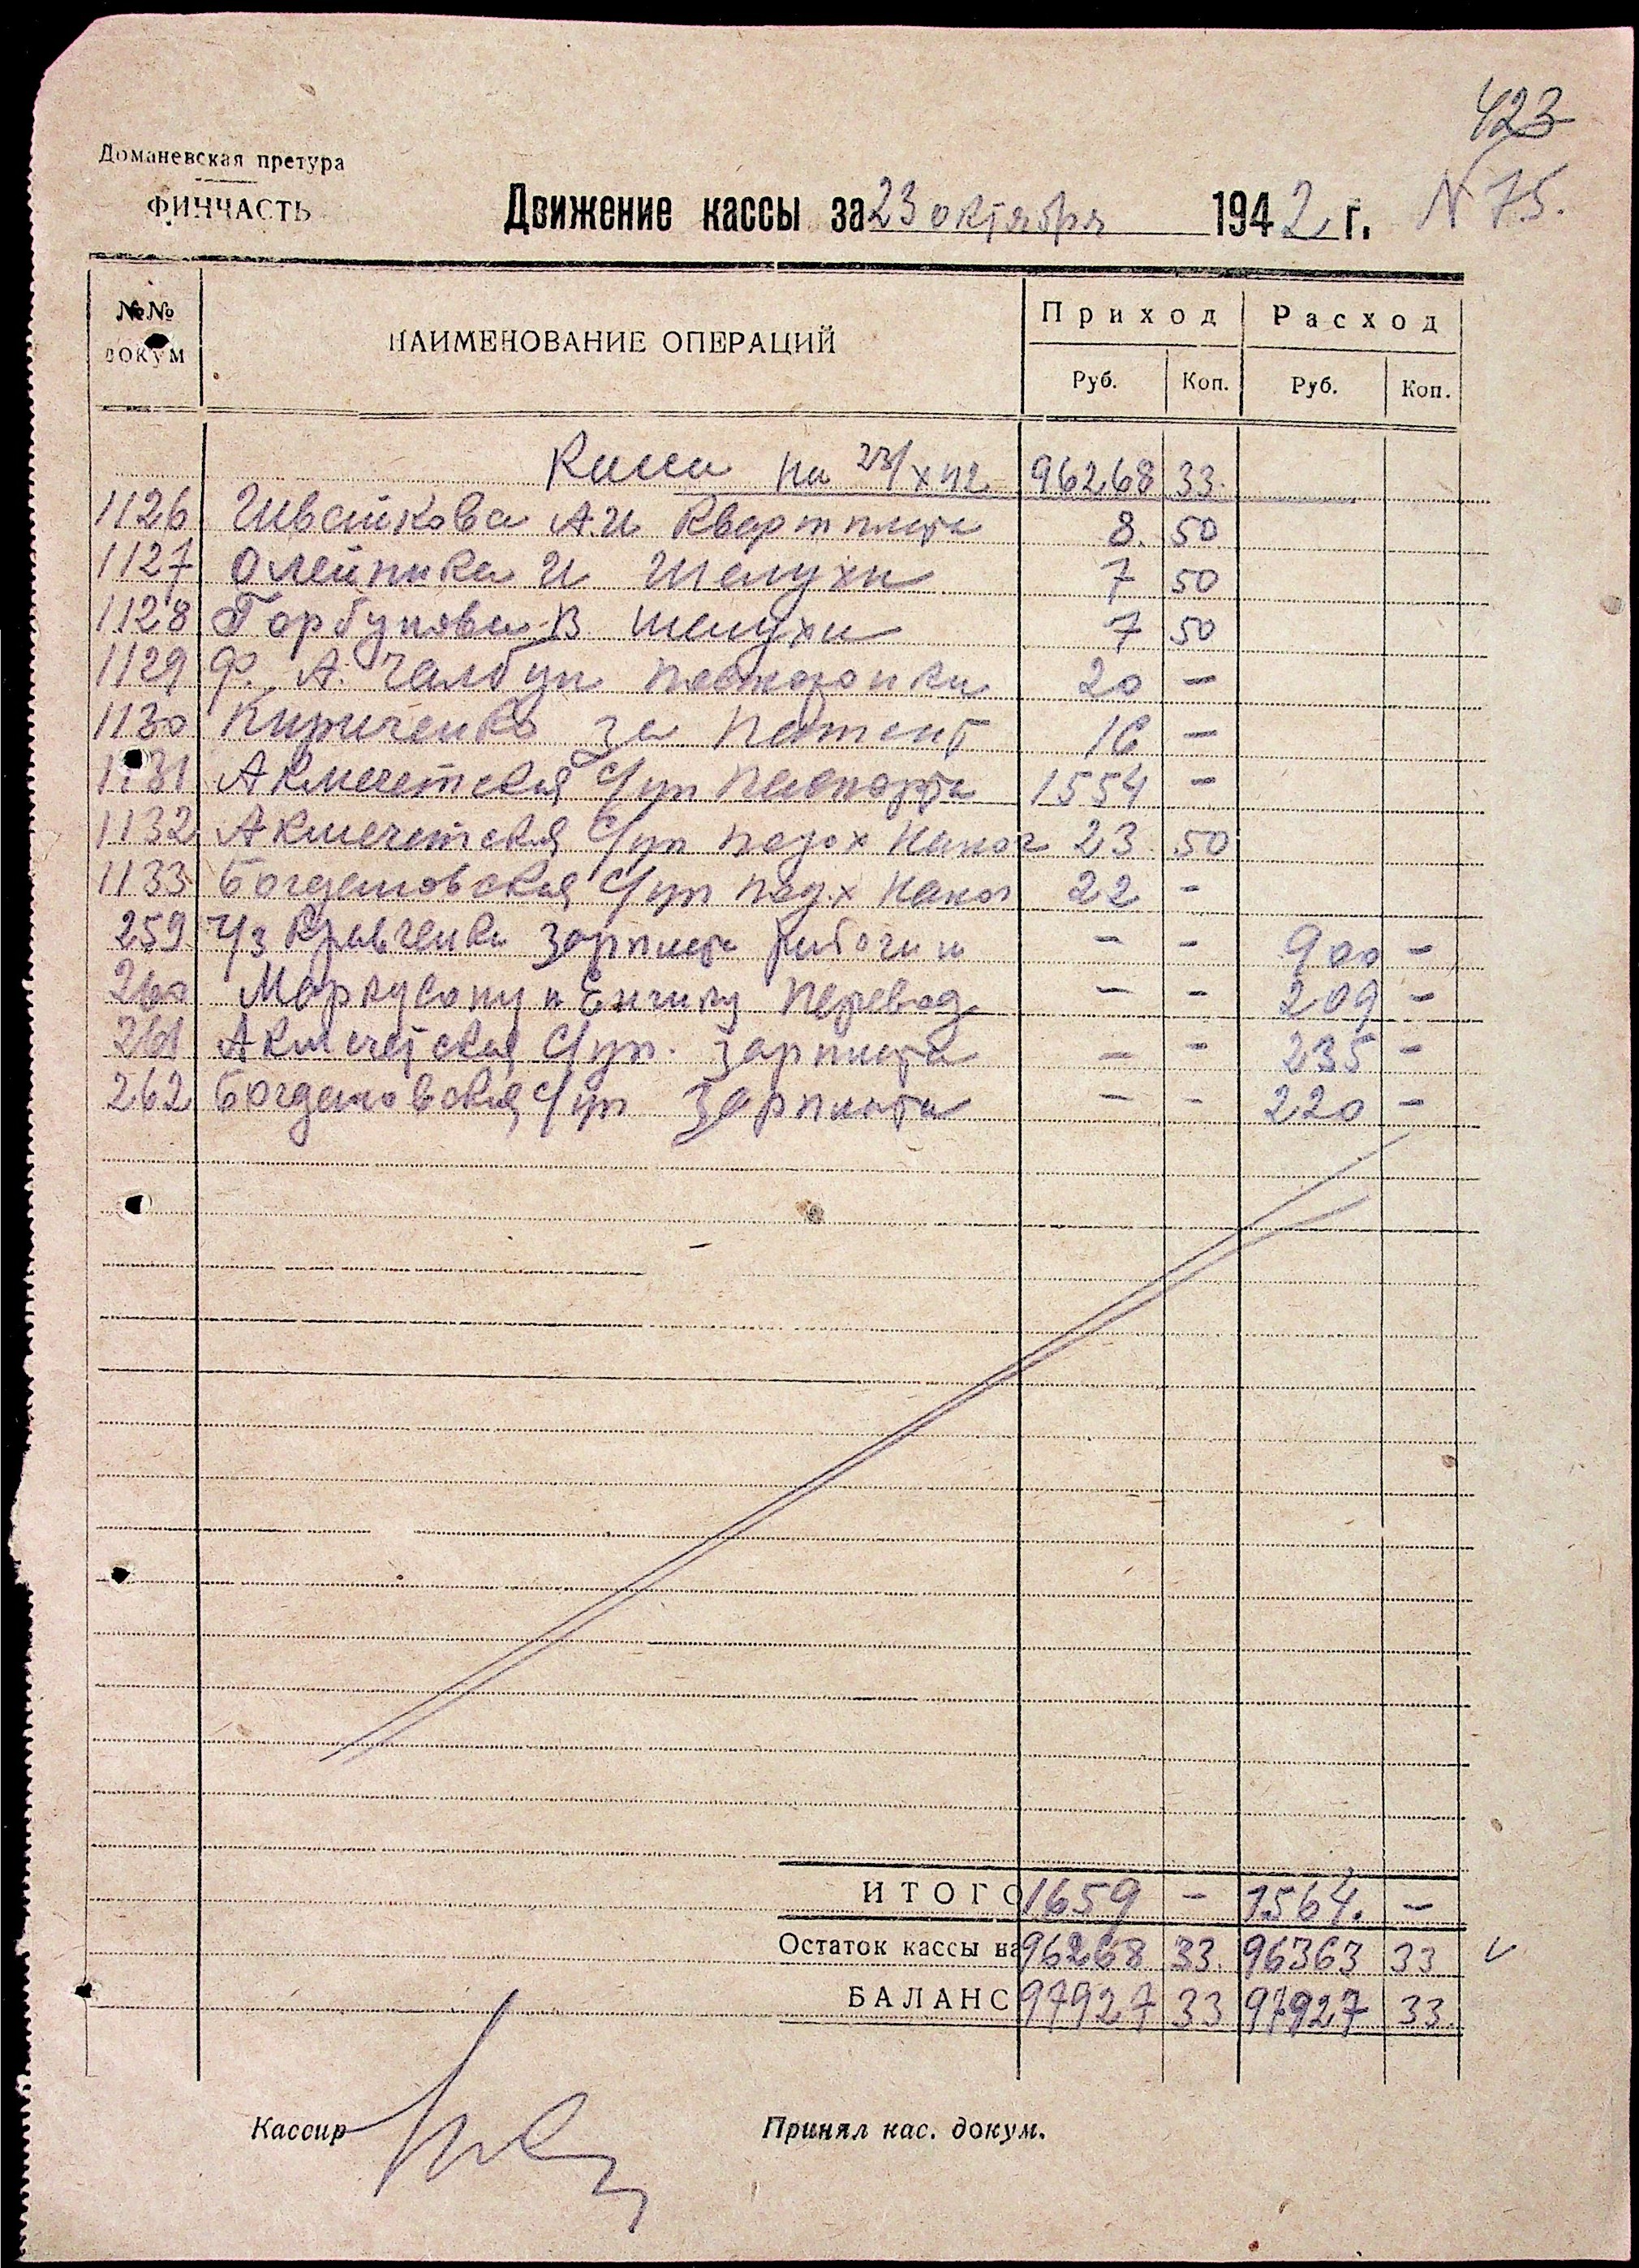 423
Доманевская претура
ФИНЧАСТЬ
Движение кассы за 23 октября 1942 г. N 75.
№№ докум НАИМЕНОВАНИЕ ОПЕРАЦИЙ Приход Расход
Руб. Коп. Руб. Коп.
Касса на 23/X 42 96268 33
1126 Швайкова А.И Квартплата 8. 50
1127 Олейника И Шелухи 7 50
1128 Горбунова В. шелухи 7 50
1129 Ф. А. 20 —
1130 Кириченко за Патент 16 —
1131 Акмечетская с/уп паспорта 1554 —
1132 Акмечетская с/уп подох налог 23. 50
1133 Богдановская с/уп под.х налог 22 -
259 ч/з Кравченка зарплата рабочим - - 900 -
260 и перевод - - 209 -
261 Акмечетская с/уп. зарплата - - 235 -
262 Богдановская с/уп зарплата - - 220 -
ИТОГО 1659 - 1564. -
Остаток кассы на 96268 33. 96363 33
БАЛАНС 97927 33 97927 33.
Кассир Принял кас. докум.